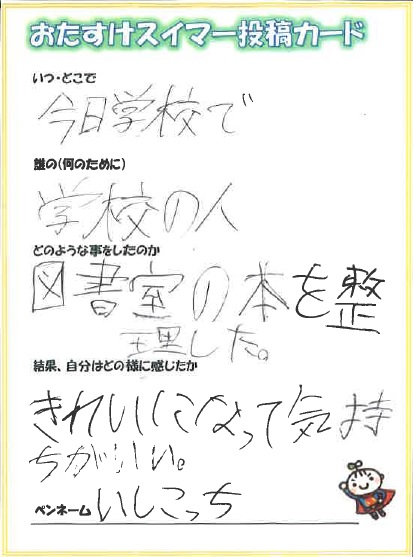 おたすけスイマー投稿カード
いつ・どこで
今日学校で
誰の(何のために)
学校の人
どのような事をしたのか
図書室の本を整
理した。
結果、自分はどの様に感じたか
きれいになって気持
ちがいい。
ペンネーム いしこっち